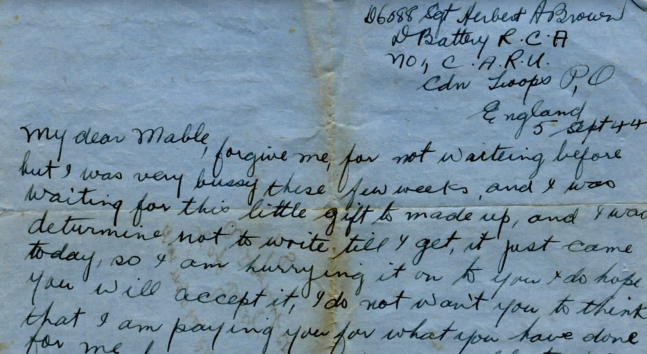 D6088 Sgt Herbert A Brown
D Battery R.C.A
No, C.A.R.U.
Cdn Troops P,O
England
5 Sept 44
My dear Mable,
forgive me, for not writeing before
but I was very bussy these few weeks, and I was
waiting for this little gift to made up, and I was
determine not to write till I get, it just came
today, so I am hurrying it on to you I do hope
you will accept it, I do not want you to think
that I am paying you for what you have done
for me